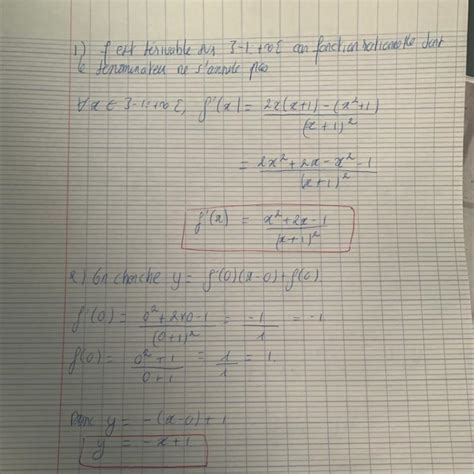 1) f est dérivable sur ]-1, +∞[ car fonction rationnelle dont
le dénominateur ne s'annule pas
∀x ∈ ]-1; +∞[, f'(x) = 2x(x+1) - (x²+1) / (x+1)²
= 2x² + 2x - x² - 1 / (x+1)²
f'(x) = x² + 2x - 1 / (x+1)²
2) On cherche y = f'(0)(x-0) + f(0)
f'(0) = 0² + 2×0 - 1 / (0+1)² = -1 / 1 = -1
f(0) = 0² + 1 / 0 + 1 = 1 / 1 = 1.
Donc y = -(x-0) + 1
y = -x + 1